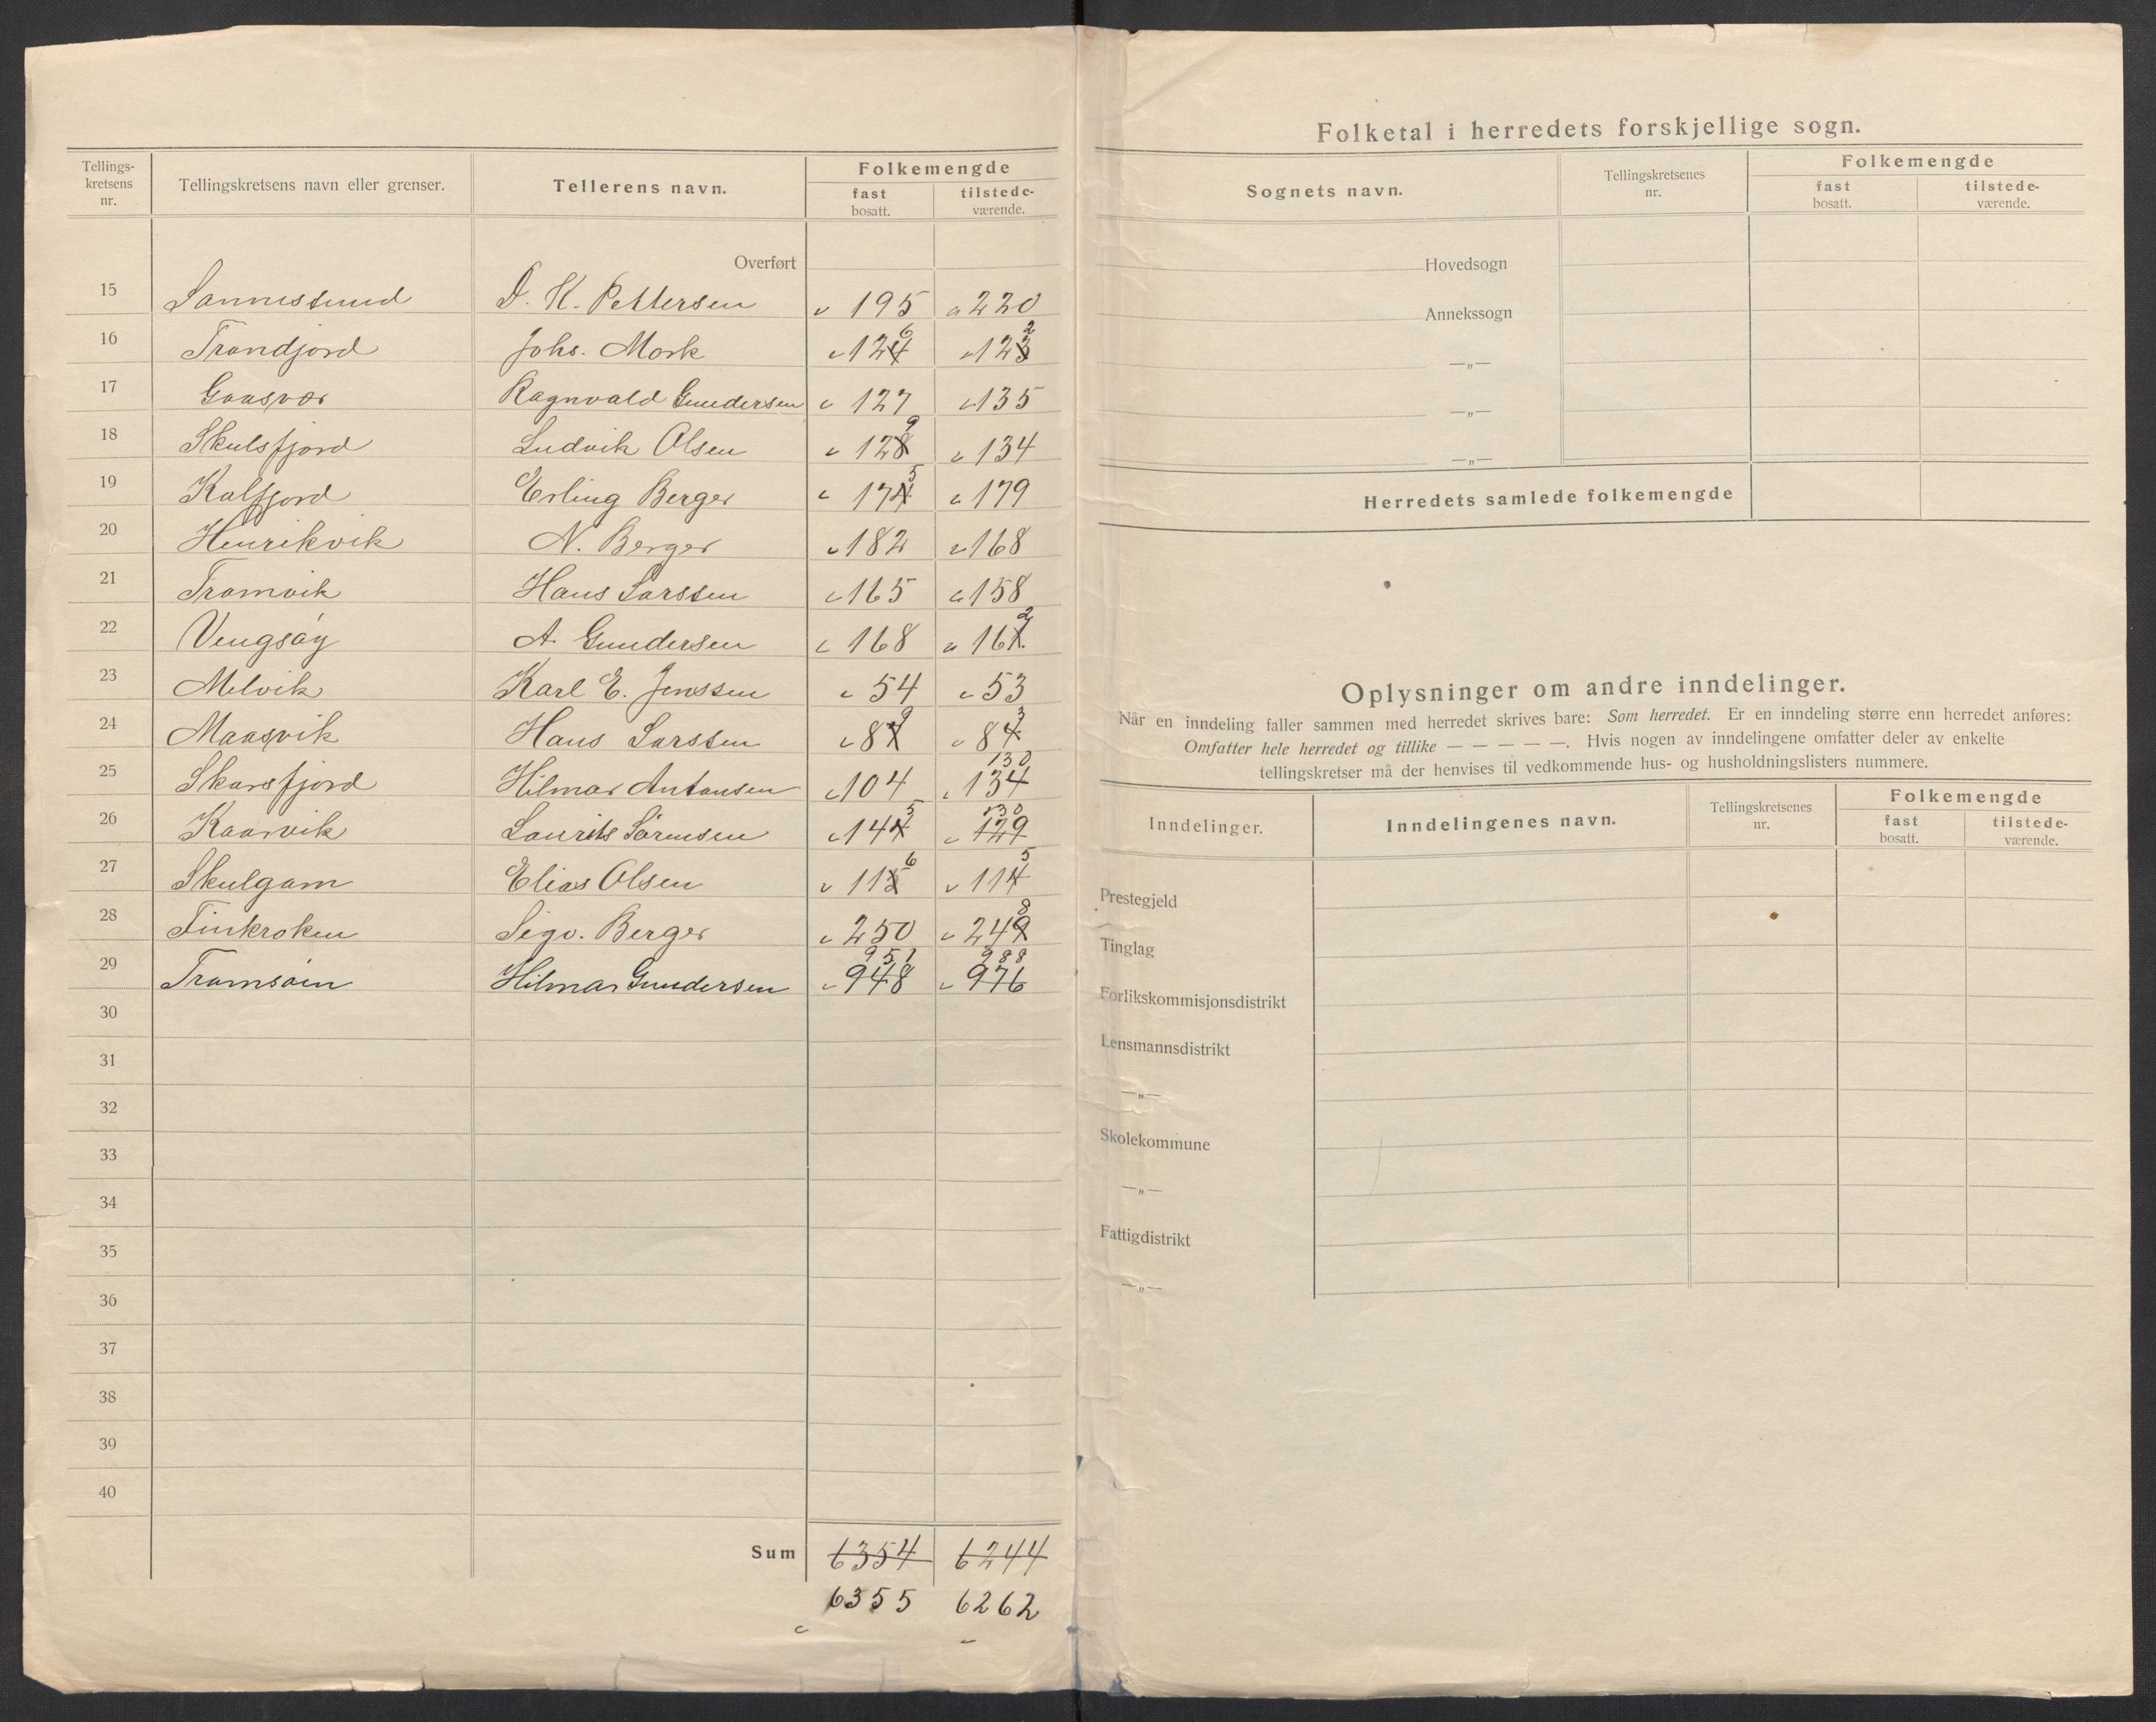 Tellings-
kretsens
nr.
Tellingskretsens navn eller grenser.
Tellerens navn.
Folkemengde
fast
bosatt.
tilstede-
værende.
Overført
15 Sannessund D. K. Pettersen 195 220
16 Trondjord Johs. Mork 124 6 123 2
17 Gaasvær Ragnvald Gundersen 127 135
18 Skulsfjord Ludvik Olsen 128 9 134
19 Kalfjord Erling Berger 174 5 179
20 Henrikvik N. Berger 182 168
21 Tromvik Hans Larssen 165 158
22 Vengsøy A. Gundersen 168 161 2
23 Melvik Karl E. Jenssen 54 53
24 Maasvik Hans Larssen 87 9 84 3
25 Skarsfjord Hilmar Antonsen 104 134 130
26 Kaarvik Laurits Sörensen 144 5 129 130
27 Skulgam Elias Olsen 115 6 114 5
28 Finkroken Sigv. Berger 250 249 8
29 Tromsøen Hilmar Gundersen 948 951 976 988
30
31
32
33
34
35
36
37
38
39
40
Sum 6354 6244
6355 6262
Folketal i herredets forskjellige sogn.
Sognets navn.
Tellingskretsenes
nr.
Folkemengde
fast
bosatt.
tilstede-
værende.
Hovedsogn
Annekssogn
—„—
—„—
—„—
Herredets samlede folkemengde
Oplysninger om andre inndelinger.
Når en inndeling faller sammen med herredet skrives bare: Som herredet. Er en inndeling større enn herredet anføres:
Omfatter hele herredet og tillike — — — — —. Hvis nogen av inndelingene omfatter deler av enkelte
tellingskretser må der henvises til vedkommende hus- og husholdningslisters nummere.
Inndelinger.
Inndelingenes navn.
Tellingskretsenes
nr.
Folkemengde
fast
bosatt.
tilstede-
værende.
Prestegjeld
Tinglag
Forlikskommisjonsdistrikt
Lensmannsdistrikt
—„—
Skolekommune
—„—
Fattigdistrikt
—„—